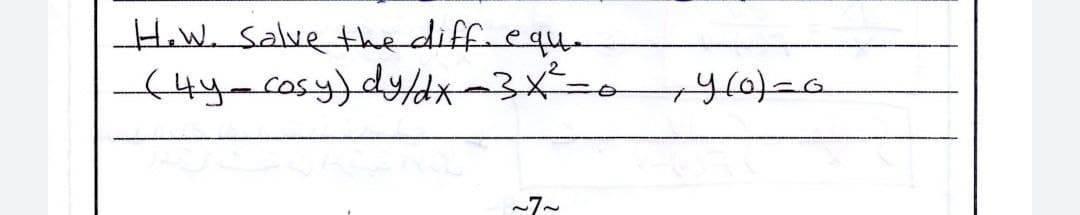 H.W. Solve the diff. equ.
(4y - cos y) dy/dx - 3x² = 0 , y(0) = 0
~7~